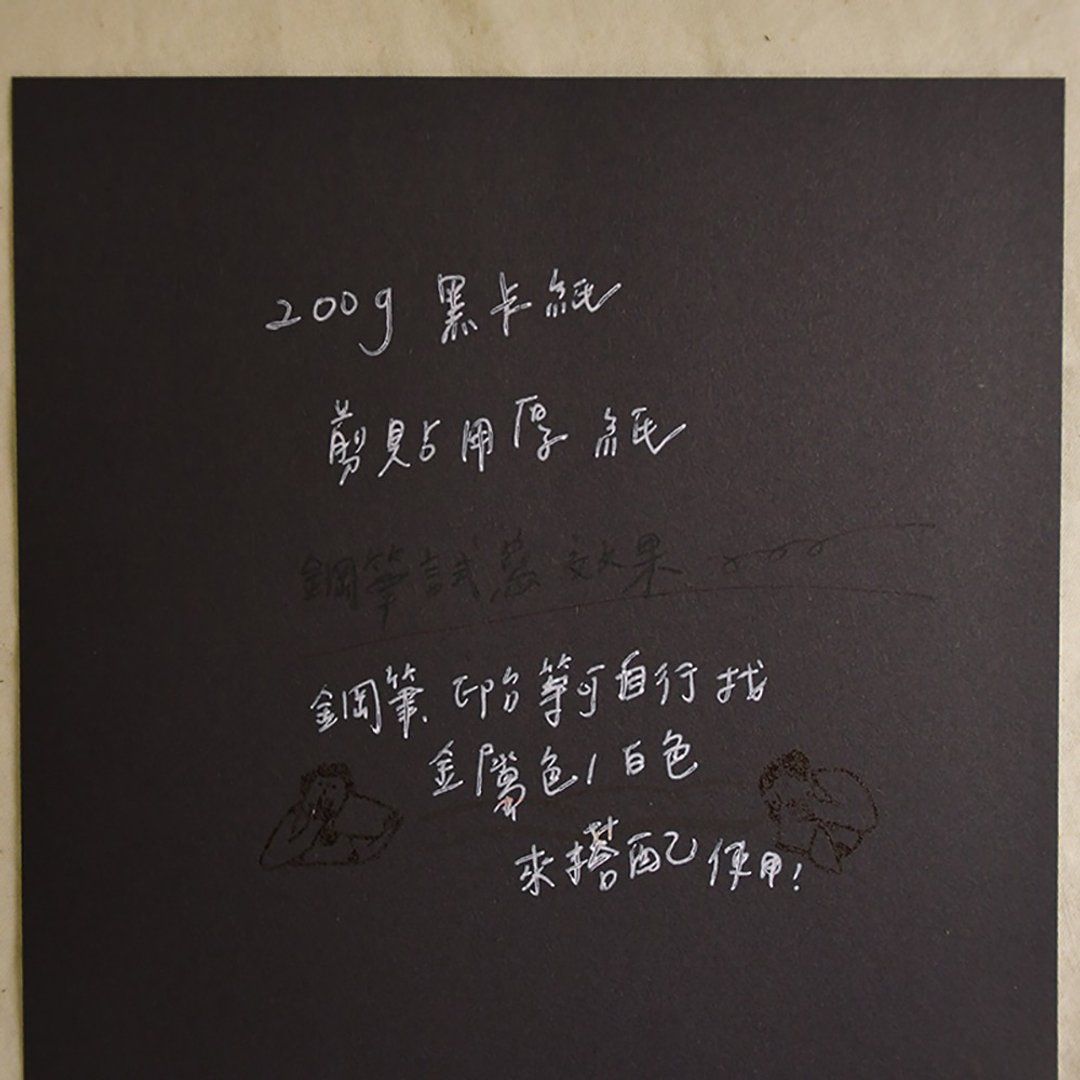 200g 黑卡紙
剪貼用厚紙
鋼筆試寫效果
鋼筆、印台等可自行找
金屬色/白色
來搭配使用!